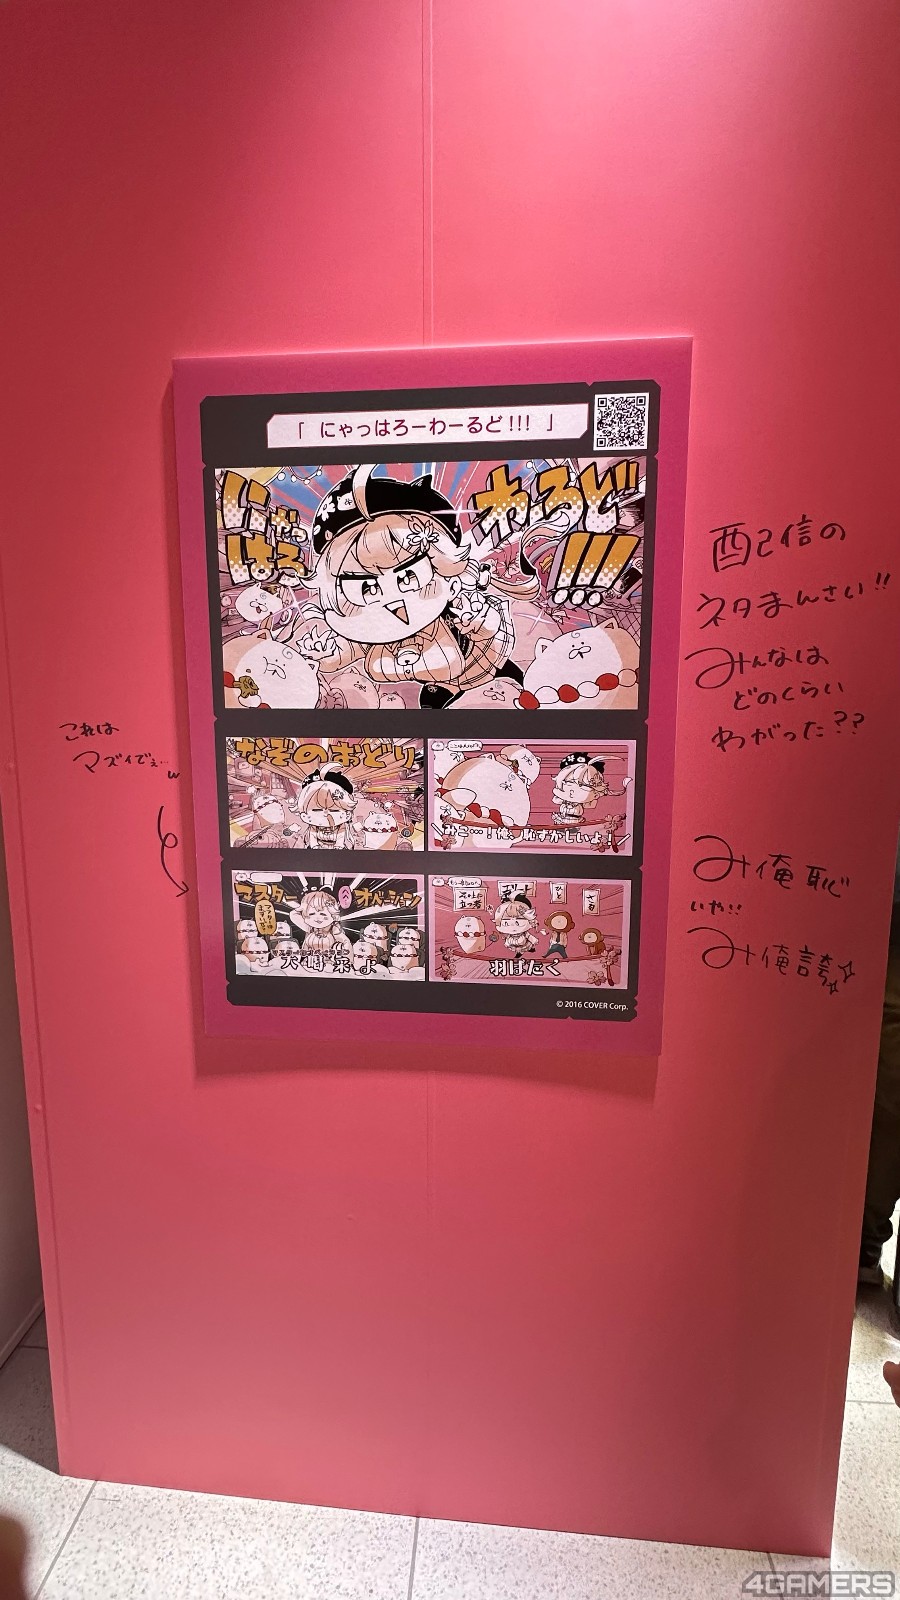 「 にゃっはろーわーるど!!! 」
にゃっ
はろ
わるど
!!!
なぞのおどり
みこ…!俺、恥ずかしいよ!
マスター
オベーション
大喝采よ
ひと
さる
羽ばたく
© 2016 COVER Corp.
これは
マズイでぇ…w
配信の
ネタまんさい!!
みんなは
どのくらい
わかった??
み俺恥
いや!!
み俺誇
4GAMERS